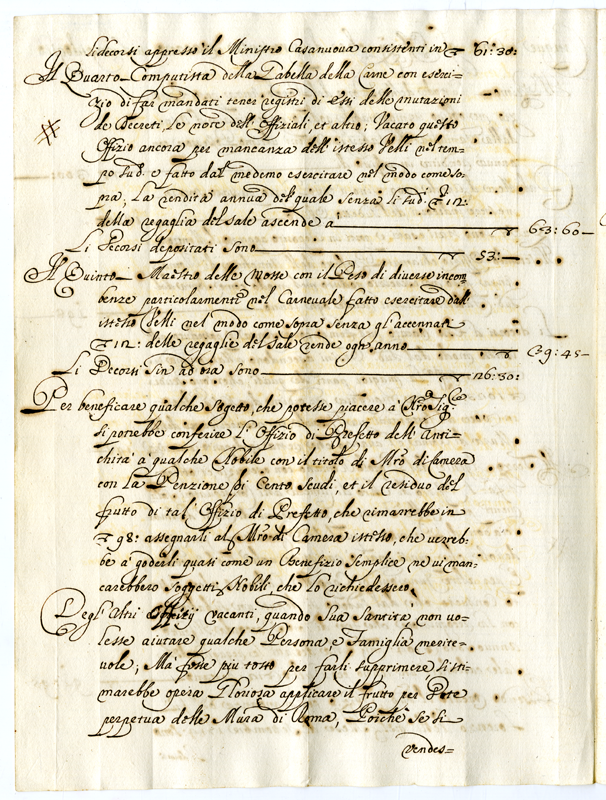 li decorsi appresso il Ministro Casanuova consistenti in ▽ 61: 30:
Il Quarto Computista della Tabella della Carne con eserci=
zio di far mandati tener registri di essi delle mutazioni
de Decreti, Le note dell' Offiziali, et altro; Vacato questo
Offizio ancora per mancanza dell' istesso Velli nel tem=
po sud.º e fatto dal medemo esercitare nel modo come so=
pra; La rendita annua del quale senza li sud.ⁱ ▽ 12:
della regaglia del sale ascende a ▽ 63: 60
Li Decorsi depositati sono ▽ 53:
Il Quinto Maestro delle Mosse con il Peso di diverse incom=
benze particolarmente nel Carnevale fatto esercitare dall'
istesso Velli nel modo come sopra senza gl' accennati
▽ 12: delle regaglie del sale rende ogn' anno ▽ 39: 45
Li Decorsi sin ad ora sono ▽ 126: 30:
Per beneficare qualche sogetto, che potesse piacere à Nrã Sig.
si potrebbe conferire l' Offizio di Prefetto dell' Anti=
chità a qualche Nobile con il titolo di Mrõ di Camera
con la Penzione di Cento Scudi, et il residuo del
frutto di tal' Offizio di Prefetto, che rimarrebbe in
▽ 98: assegnarli al Mrõ di Camera istesso, che verreb=
be à goderli quasi come un Benefizio semplice ne vi man=
carebbero Soggetti Nobili, che lo richiedessero
Degl' altri Offizij vacanti, quando Sua Santità, non vo=
lesse aiutare qualche Persona, e Famiglia merite=
vole; Mà fosse più tosto per farli supprimere, si sti=
marebbe opera Gloriosa applicare il frutto per Dote
perpetua delle Mura di Roma, Poiché se si
vendes=